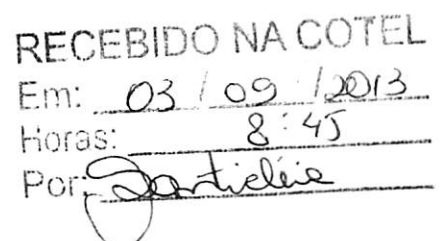 RECEBIDO NA COTEL
Em: 03 / 09 / 2013
Horas: 8:45
Por: